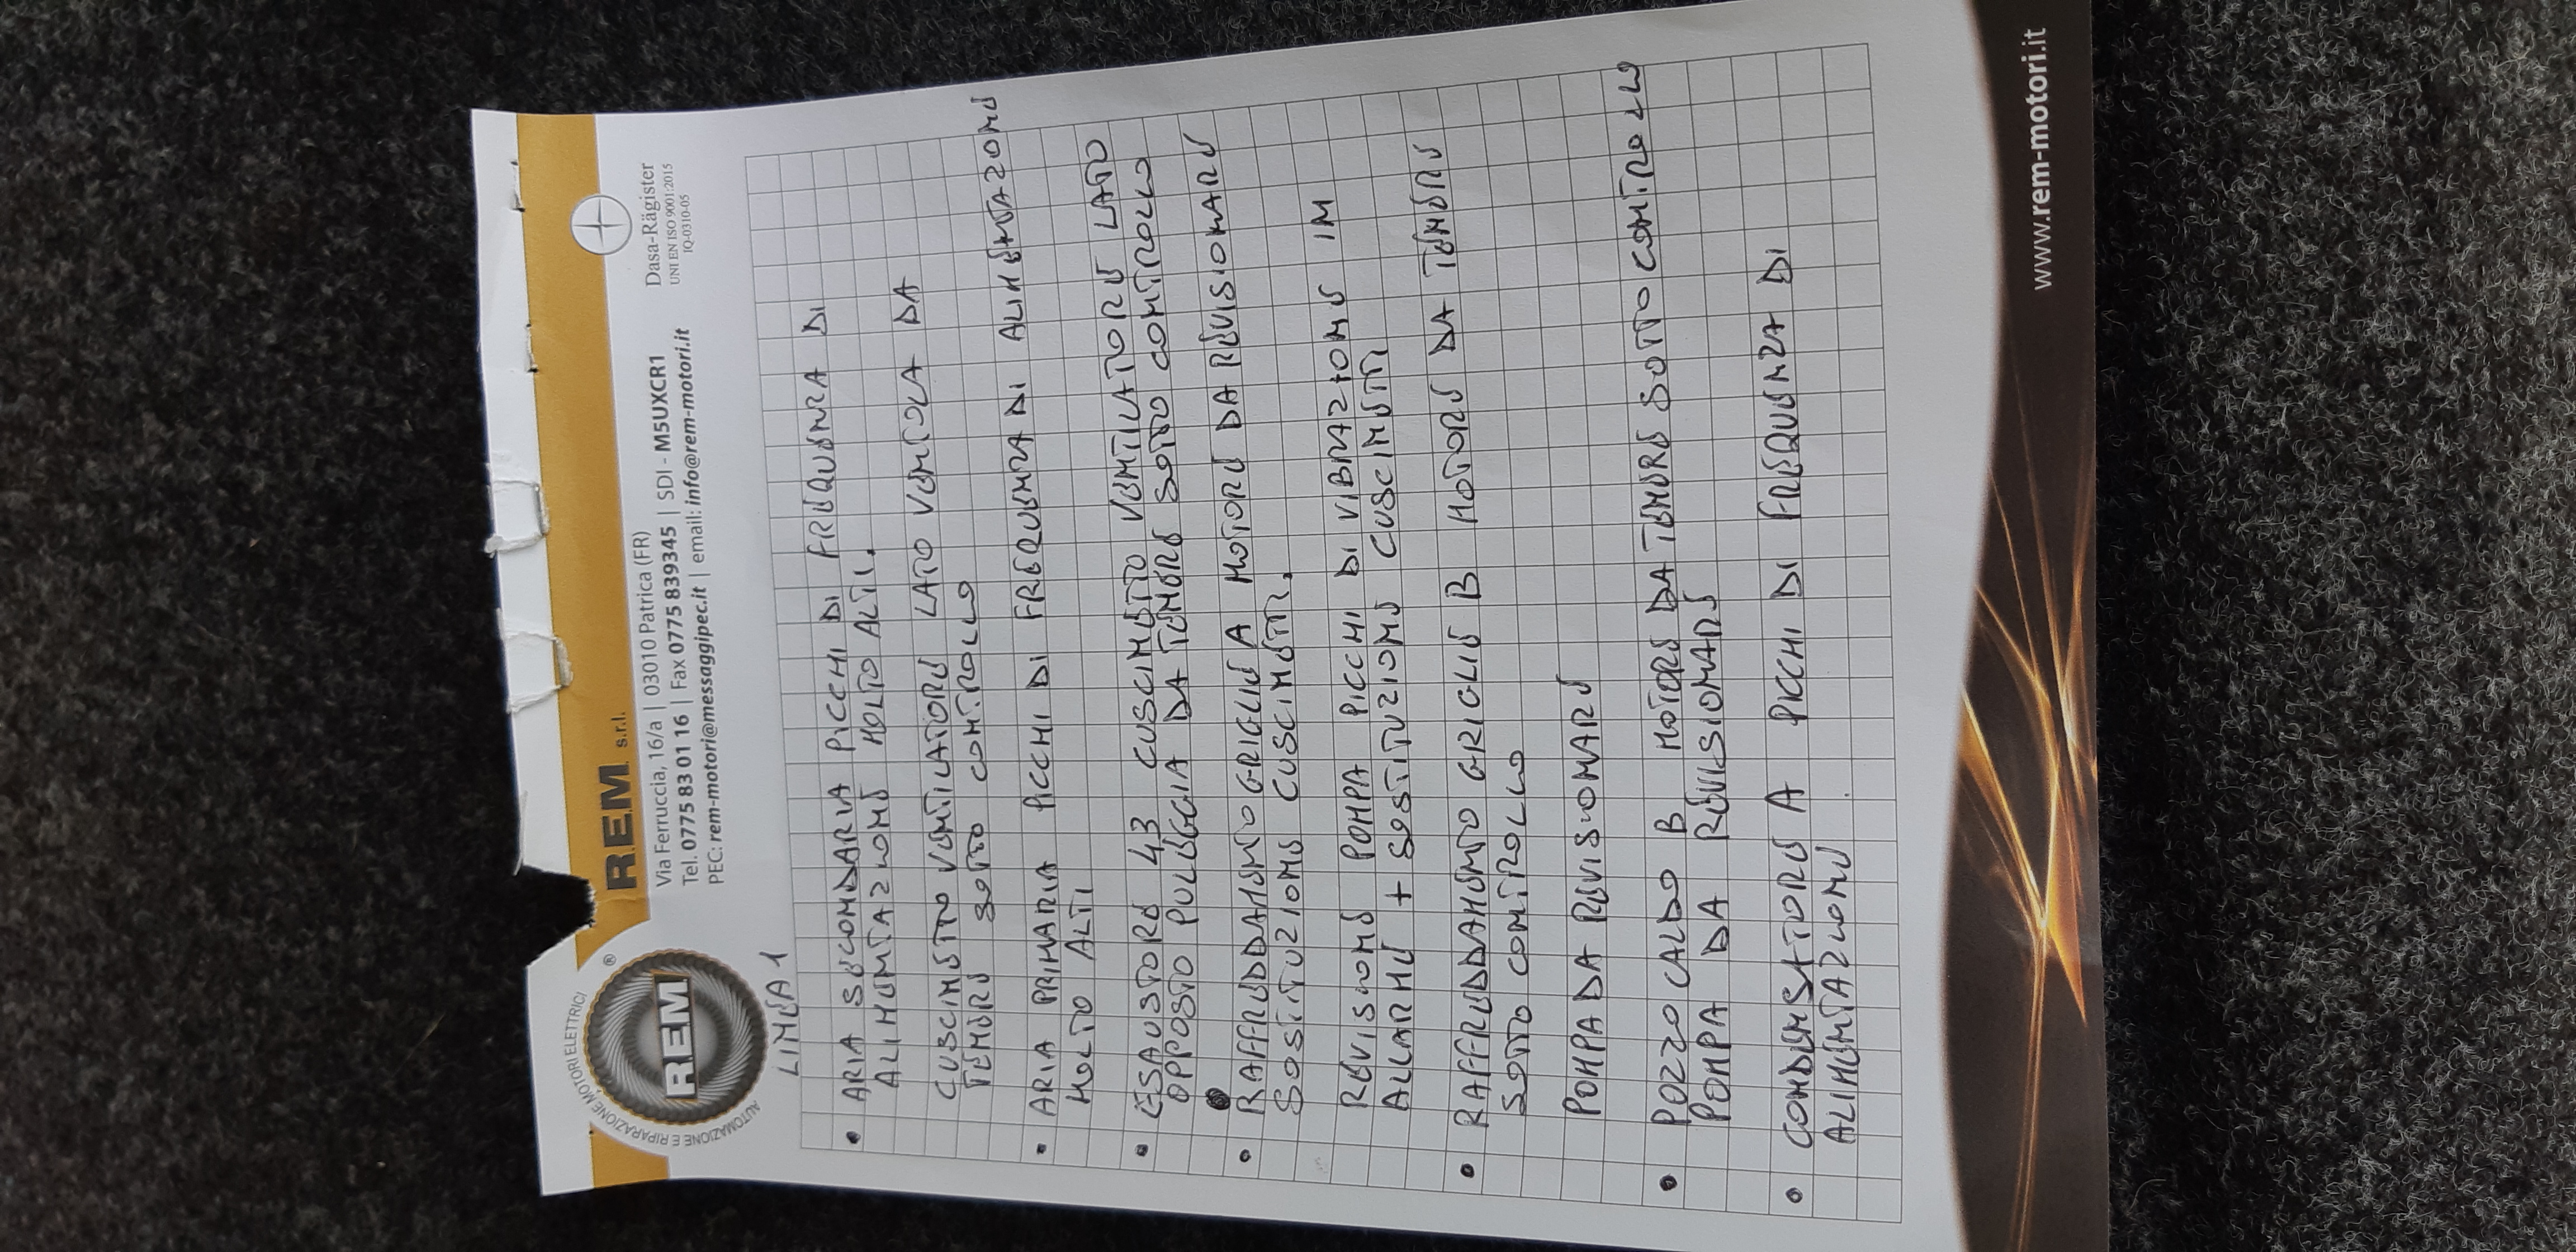 AUTOMAZIONE E RIPARAZIONE MOTORI ELETTRICI
REM
®
R.E.M. s.r.l.
Via Ferruccia, 16/a | 03010 Patrica (FR)
Tel. 0775 83 01 16 | Fax 0775 839345 | SDI - M5UXCR1
PEC: rem-motori@messaggipec.it | email: info@rem-motori.it
Dasa-Rägister
UNI EN ISO 9001:2015
IQ-0310-05
LINEA 1
• ARIA SECONDARIA PICCHI DI FREQUENZA DI
ALIMENTAZIONE MOLTO ALTI.
CUSCINETTO VENTILATORE LATO VENTOLA DA
TENERE SOTTO CONTROLLO
• ARIA PRIMARIA PICCHI DI FREQUENZA DI ALIMENTAZIONE
MOLTO ALTI
• ESAUSTORE 43 CUSCINETTO VENTILATORE LATO
OPPOSTO PULEGGIA DA TENERE SOTTO CONTROLLO
• RAFFREDDAMENTO GRIGLIE A MOTORE DA REVISIONARE
SOSTITUZIONE CUSCINETTI.
REVISIONE POMPA PICCHI DI VIBRAZIONE IN
ALLARME + SOSTITUZIONE CUSCINETTI
• RAFFREDDAMENTO GRIGLIE B MOTORE DA TENERE
SOTTO CONTROLLO
POMPA DA REVISIONARE
• POZZO CALDO B MOTORE DA TENERE SOTTO CONTROLLO
POMPA DA REVISIONARE
• CONDENSATORE A PICCHI DI FREQUENZA DI
ALIMENTAZIONE
www.rem-motori.it